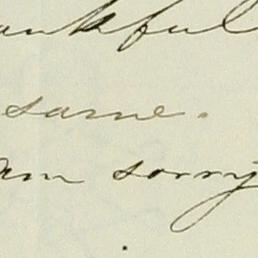 ankful
same.
am sorry